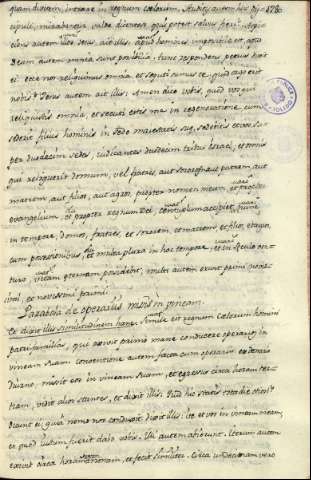 quam divitem, intrare in regnum cœlorum. Auditis autem his, Dis-
cipuli, mirabantur valde dicentes: quis poterit salvus fieri? Aspi
ciens autem Jesus ait illis: apud homines impossibile est, apud
Deum autem omnia sunt possibilia. tunc respondens petrus dixit
ei: ecce nos reliquimus omnia, et secuti sumus te, quid ergo erit
nobis? Jesus autem ait illis: Amen dico vobis, quod vos qui
reliquistis omnia, et secuti estis me in regeneratione, cum
sederit filius hominis in sede maiestatis suæ, sedebitis et vos su-
per duodecim sedes, iudicantes duodecim tribus Israel, et omnis
qui reliquerit domum, vel fratres, aut sorores aut patrem aut
matrem, aut filios, aut agros, propter nomen meum, et propter
evangelium, et propter regnum Dei, centuplum accipiet
in tempore, domos, fratres, et sorores, et matres, et filios, et agros,
cum persecutionibus, et multa plura in hoc tempore, et in sæculo ven-
turo, vitam æternam possidebit, multi autem erunt primi novis-
simi, et novissimi primi.
Parabola de operariis missis in vineam.
Et dixit illis similitudinem hanc: Simile est regnum cœlorum homini
patrifamilias, qui exiit primo mane conducere operarios in
vineam suam. conventione autem facta cum operariis ex denario
diurno, misit eos in vineam suam, et egressus circa horam ter-
tiam, vidit alios stantes, et dixit illis: Quid hic statis tota die otiosi?
Dicunt ei: quia nemo nos conduxit: dixit illis: ite et vos in vineam meam,
et quod iustum fuerit dabo vobis. Illi autem abierunt. Iterum autem
exivit circa horam nonam, et fecit similiter. Circa undecimam vero